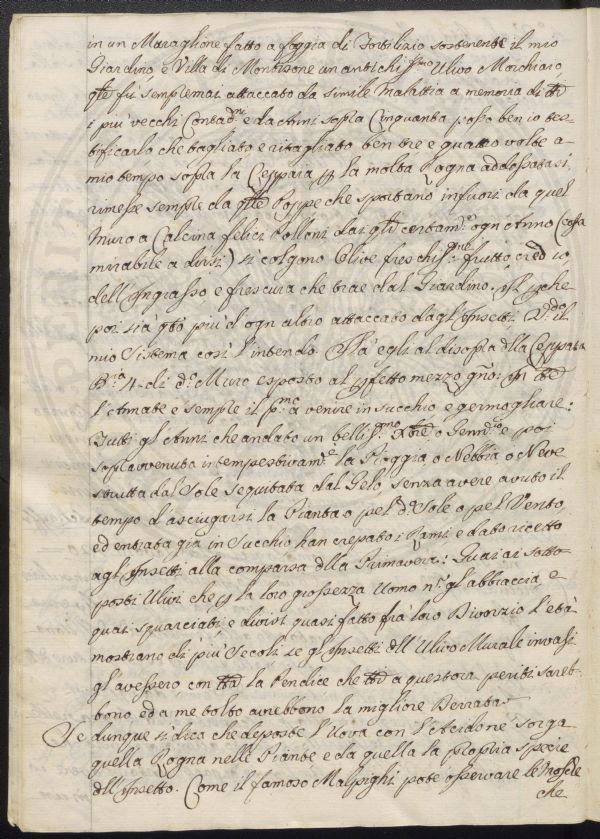 in un Muraglione fatto a foggia di Fortilizio sostenente il mio
Giardino, e Villa di Montisone un antichissmo Ulivo Morchiaro
qle fù semplemai attaccato da simile Malattia a memoria di tti
i più vecchi Contadni e da Anni sopra Cinquanta posso ben io tes-
tificarlo che tagliato e ritagliato ben tre e quattro volte a
mio tempo sopra la Ceppaia p la molta Rogna addossatasi
rimesse sempre da qlle Poppe che spuntano infuori da quel
Muro a Calcina felici Polloni dai qli certamte ogn'Anno (cosa
mirabile a dirsi) si colgono Olive freschissme frutto cred'io
dell'Ingrasso e frescura che trae dal Giardino,
poi sia qto più d'ogn altro attaccato dagl'Insetti il
mio Sistema così l'intendo. Stà egli al disopra dlla Ceppaia
Bra 4 di do Muro esposto al pfetto mezzo gno: In tte
l'Annate e sempre il pmo a venire in succhio e germogliare:
Tutti gl'Anni che andato un bellissmo Xbre o Gennro e poi
sopravvenuta intempestivamte la Pioggia o Nebbia o Neve
strutta dal Sole seguitata dal Gelo, senza avere avuto il
tempo d'asciugarsi la Pianta o pel do Sole o pel Vento,
ed entrata già in Succhio han crepato i Rami e dato ricetto
agl'Insetti alla comparsa dlla Primavera: Guai ai sotto-
posti Ulivi che p la loro grossezza Uomo n gl'abbraccia, e
quasi squarciati, e divisi quasi fatto frà loro Divorzio l'età
mostrano di più Secoli se gl'Insetti dll'Ulivo Murale invasi
gl'avessero con tta la Pendice che tti a quest'ora periti sareb-
bono ed a me tolto avrebbono la migliore Derrata
Se dunque si dica che deposte l'Uova con l'Acidone sorga
quella Rogna nelle Piante e da quella la propria specie
dll'Insetto. Come il famoso Malpighi potè osservare le Mosche
che